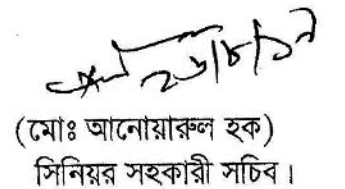 ২৬/৮/১৯
(মোঃ আনোয়ারুল হক)
সিনিয়র সহকারী সচিব।